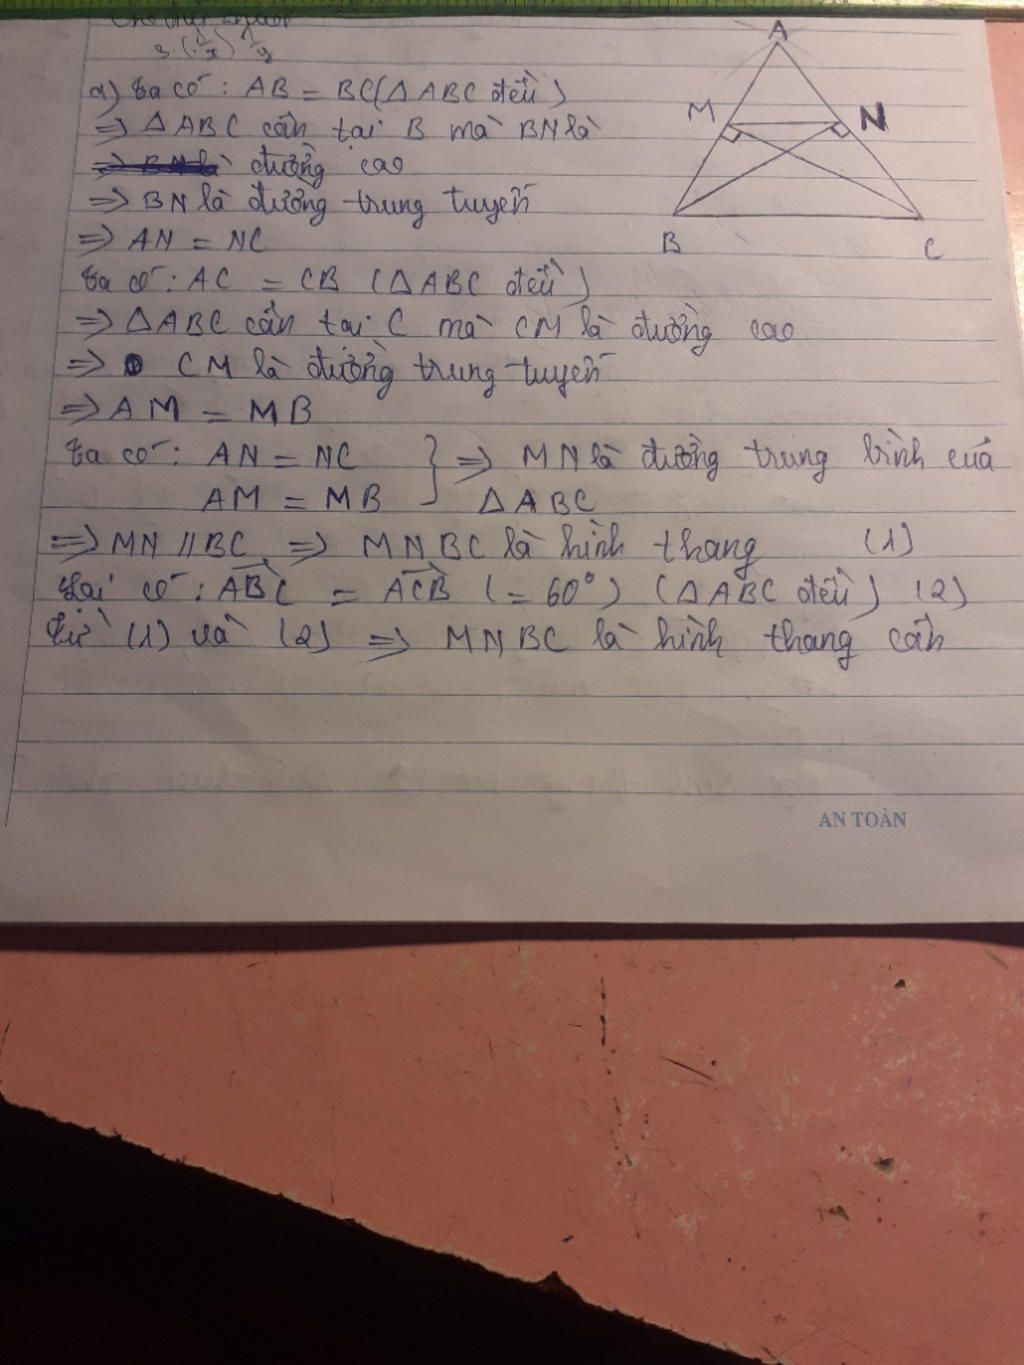 A
a) Ta có: AB = BC (△ABC đều)
M
N
⇒ △ABC cân tại B mà BN là
đường cao
⇒ BN là đường trung tuyến
B
C
⇒ AN = NC
Ta có: AC = CB (△ABC đều)
⇒ △ABC cân tại C mà CM là đường cao
⇒ CM là đường trung tuyến
⇒ AM = MB
Ta có: AN = NC } ⇒ MN là đường trung bình của
AM = MB △ABC
⇒ MN // BC ⇒ MNBC là hình thang (1)
Lại có: ABC = ACB (= 60°) (△ABC đều) (2)
Từ (1) và (2) ⇒ MNBC là hình thang cân
AN TOÀN